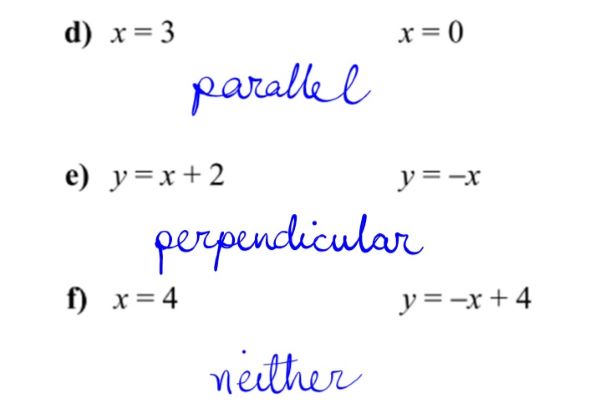 d) x = 3 x = 0
parallel
e) y = x + 2 y = –x
perpendicular
f) x = 4 y = –x + 4
neither